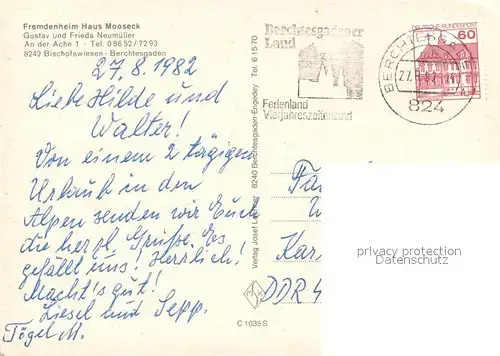 Fremdenheim Haus Mooseck
Gustav und Frieda Neumüller
An der Ache 1 · Tel. 08652/7293
8242 Bischofswiesen - Berchtesgaden
27.8.1982
Liebe Hilde und
Walter!
Von einem 2 tägigen
Urlaub in den
Alpen senden wir Euch
die herzl. Grüße. Es
gefällt uns! Herrlich!
Macht's gut!
Liesel und Sepp.
Tögel M.
Berchtesgadener
Land
Ferienland
Vierjahreszeitenland
DEUTSCHE BUNDESPOST
60
BERCHTESGADEN
824
Verlag Josef 8240 Berchtesgaden-Engedey Tel. 61570
Fa
Kar
DDR 4
C 1035 S
privacy protection
Datenschutz